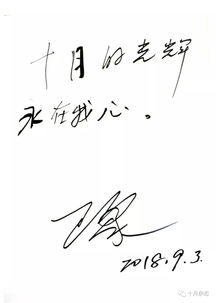 十月的光辉
永在我心。
2018.9.3
十月杂志